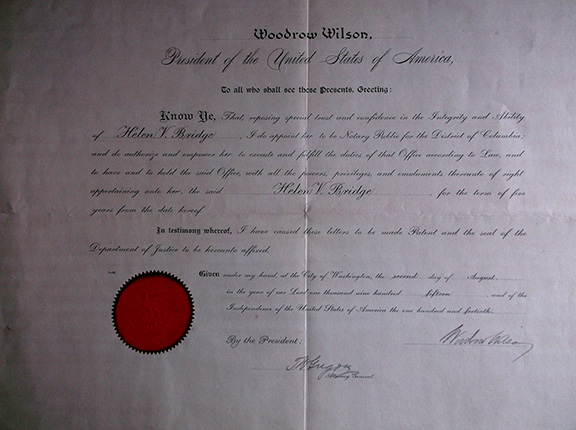 Woodrow Wilson,
President of the United States of America,
To all who shall see these Presents, Greeting:
Know Ye, That, reposing special trust and confidence in the Integrity and Ability
of Helen V. Bridge, I do appoint her to be Notary Public for the District of Columbia;
and do authorize and empower her to execute and fulfill the duties of that Office according to Law, and
to have and to hold the said Office, with all the powers, privileges, and emoluments thereunto of right
appertaining unto her, the said Helen V. Bridge, for the term of five
years from the date hereof
In testimony whereof, I have caused these letters to be made Patent and the seal of the
Department of Justice to be hereunto affixed.
Given under my hand, at the City of Washington, the second day of August
in the year of our Lord one thousand nine hundred fifteen and of the
Independence of the United States of America the one hundred and fortieth.
Woodrow Wilson
By the President:
T W Gregory
Attorney General